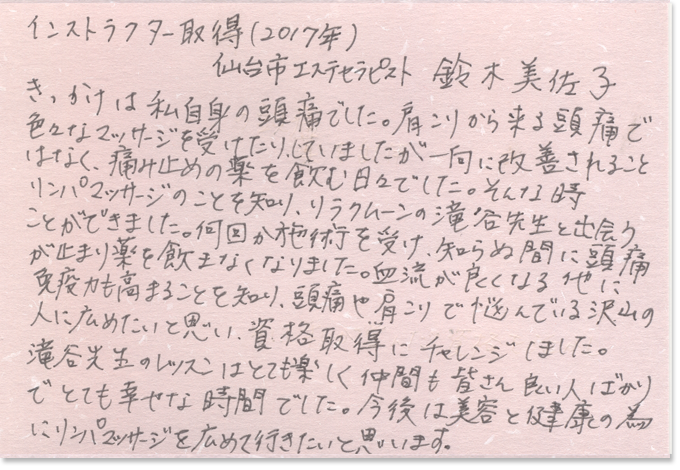 インストラクター取得(2017年)
仙台市エステセラピスト 鈴木美佐子
きっかけは私自身の頭痛でした。肩こりから来る頭痛で
色々なマッサージを受けたりしていましたが一向に改善されること
はなく、痛み止めの薬を飲む日々でした。そんな時
リンパマッサージのことを知り、リラクムーンの滝谷先生と出会う
ことができました。何回か施術を受け、知らぬ間に頭痛
が止まり薬を飲まなくなりました。血流が良くなる他に
免疫力も高まることを知り、頭痛や肩こりで悩んでいる沢山の
人に広めたいと思い、資格取得にチャレンジしました。
滝谷先生のレッスンはとても楽しく仲間も皆さん良い人ばかり
でとても幸せな時間でした。今後は美容と健康の為
にリンパマッサージを広めて行きたいと思います。